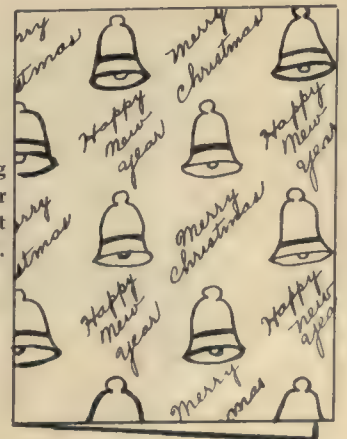 rry
stmas
Merry
Christmas
Happy
New
Year
Happy
New
Year
g
r
t
.
erry
stmas
Merry
Christmas
Happy
New
Year
Happy
new
Yea
Merry
mas